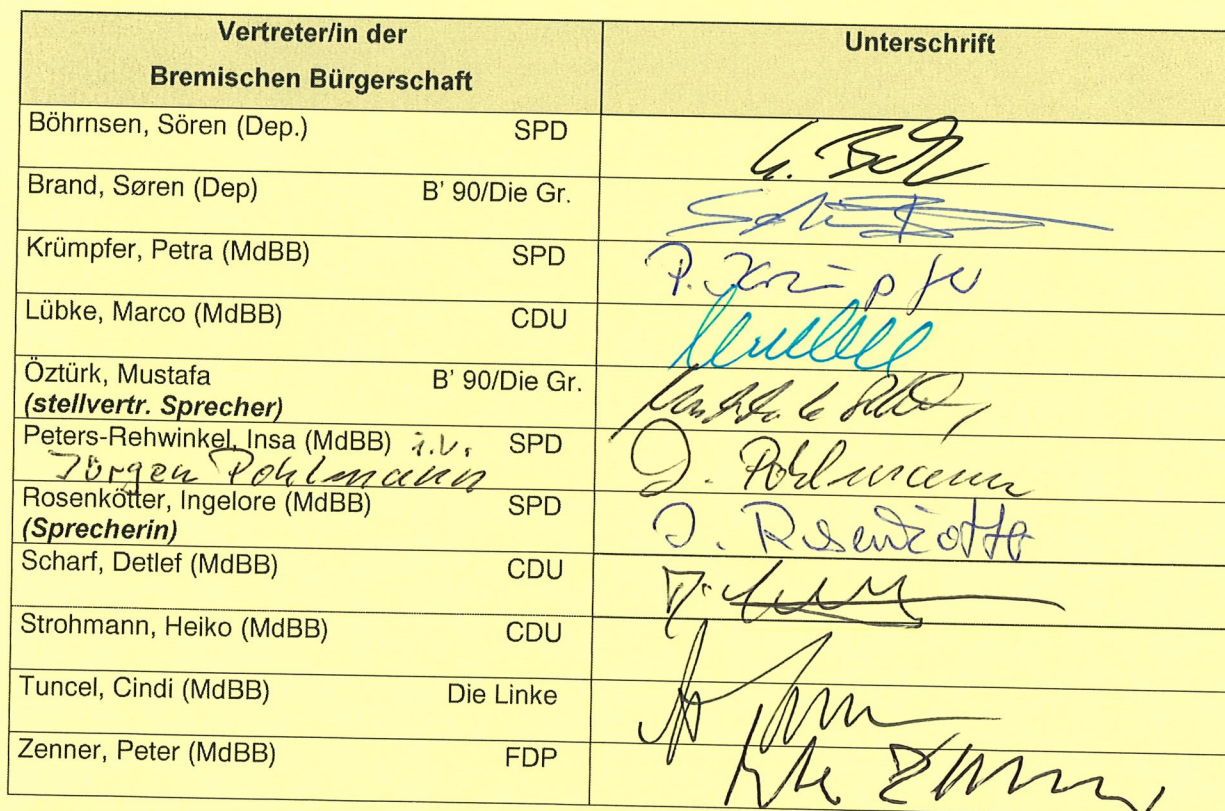 Vertreter/in der Unterschrift
Bremischen Bürgerschaft
Böhrnsen, Sören (Dep.) SPD
Brand, Søren (Dep) B' 90/Die Gr.
Krümpfer, Petra (MdBB) SPD P. Krümpfer
Lübke, Marco (MdBB) CDU
Öztürk, Mustafa B' 90/Die Gr.
(stellvertr. Sprecher)
Peters-Rehwinkel, Insa (MdBB) i.V. SPD
Jürgen Pohlmann J. Pohlmann
Rosenkötter, Ingelore (MdBB) SPD I. Rosenkötter
(Sprecherin)
Scharf, Detlef (MdBB) CDU
Strohmann, Heiko (MdBB) CDU
Tuncel, Cindi (MdBB) Die Linke
Zenner, Peter (MdBB) FDP